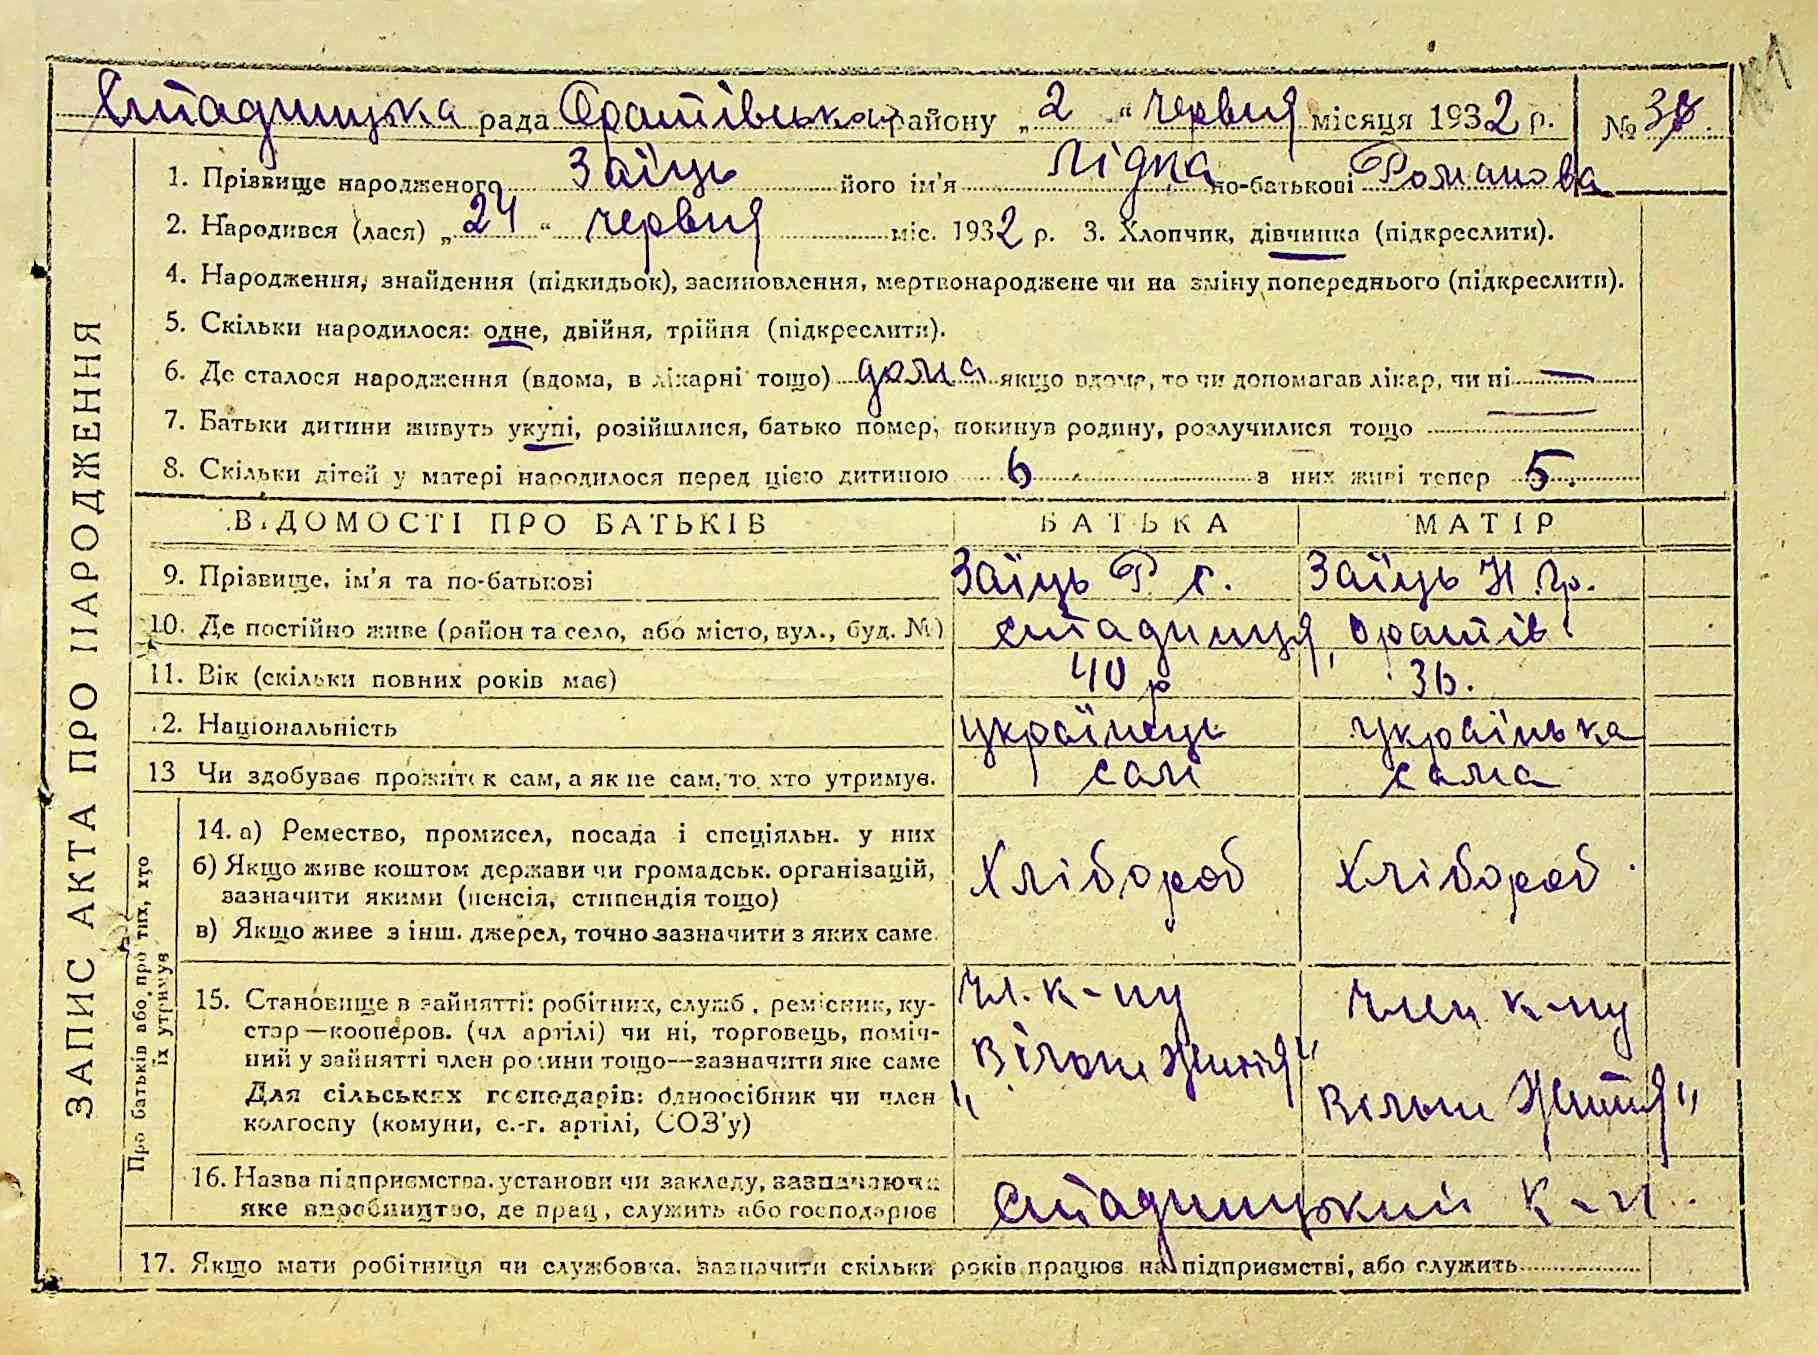 Стадницька рада Оратівська району „2“ червня місяця 1932 р. № 38.
ЗАПИС АКТА ПРО НАРОДЖЕННЯ
1. Прізвище народженого Заїць його ім'я Лідка по-батькові Романова
2. Народився (лася) „24“ червня міс. 1932 р. 3. Хлопчик, дівчинка (підкреслити).
4. Народження, знайдення (підкидьок), засиновлення, мертвонароджене чи на зміну попереднього (підкреслити).
5. Скільки народилося: одне, двійня, трійня (підкреслити).
6. Де сталося народження (вдома, в лікарні тощо) дома якщо вдома, то чи допомагав лікар, чи ні —
7. Батьки дитини живуть укупі, розійшлися, батько помер, покинув родину, розлучилися тощо
8. Скільки дітей у матері народилося перед цією дитиною 6 з них живі тепер 5.
ВІДОМОСТІ ПРО БАТЬКІВ БАТЬКА МАТІР
9. Прізвище, ім'я та по-батькові Заїць Р. Г. Заїць Н. Гр.
10. Де постійно живе (район та село, або місто, вул., буд. №) Стадниця, Оратів
11. Вік (скільки повних років має) 40 р 36.
12. Національність українець українька
13 Чи здобуває прожиток сам, а як не сам, то хто утримує. сам сама
Про батьків або про тих, хто їх утримує
14. а) Ремество, промисел, посада і спеціяльн. у них Хлібороб Хлібороб
б) Якщо живе коштом держави чи громадськ. організацій,
зазначити якими (пенсія, стипендія тощо)
в) Якщо живе з інш. джерел, точно зазначити з яких саме.
15. Становище в зайнятті: робітник, служб., ремісник, ку-
стар—кооперов. (чл артілі) чи ні, торговець, поміч-
ний у зайнятті член родини тощо—зазначити яке саме
Для сільських господарів: одноосібник чи член
колгоспу (комуни, с.-г. артілі, СОЗ'у)
Чл. к-пу
„Вільне Життя“
Член к-пу
Вільне Життя“
16. Назва підприємства, установи чи закладу, зазначаючи
яке виробництво, де прац., служить або господарює Стадницький к-п.
17. Якщо мати робітниця чи службовка, зазначити скільки років працює на підприємстві, або служить